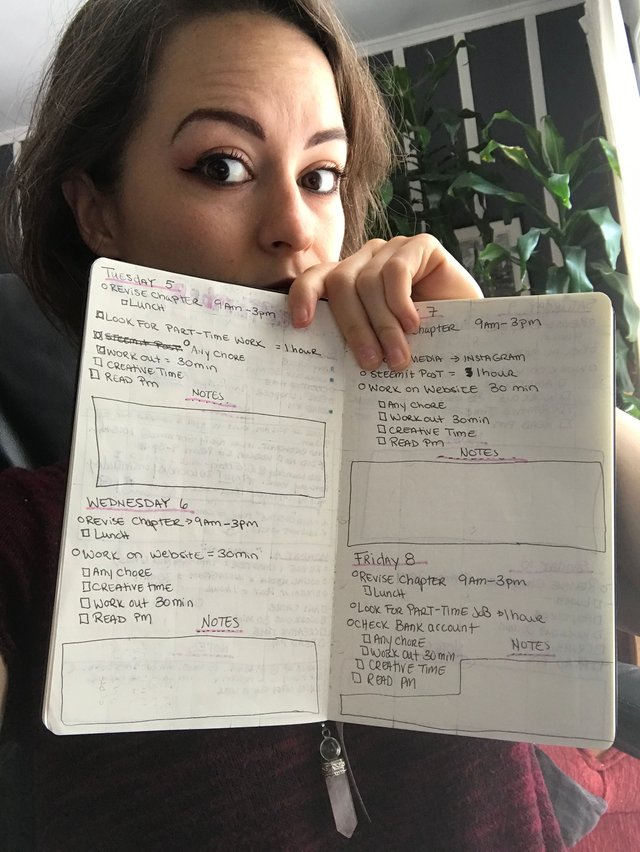 TUESDAY 5
REVISE CHAPTER 9AM-3PM
LUNCH
LOOK FOR PART-TIME WORK = 1 HOUR
STEEMIT POST ANY CHORE
WORK OUT = 30 MIN
CREATIVE TIME
READ PM
NOTES
WEDNESDAY 6
REVISE CHAPTER → 9AM-3PM
LUNCH
WORK ON WEBSITE = 30 MIN
ANY CHORE
CREATIVE TIME
WORK OUT 30 MIN
READ PM
NOTES
7
CHAPTER 9AM-3PM
MEDIA → INSTAGRAM
STEEMIT POST = 1 HOUR
WORK ON WEBSITE 30 MIN
ANY CHORE
WORK OUT 30 MIN
CREATIVE TIME
READ PM
NOTES
FRIDAY 8
REVISE CHAPTER 9AM-3PM
LUNCH
LOOK FOR PART-TIME JOB → 1 HOUR
CHECK BANK ACCOUNT
ANY CHORE
WORK OUT 30 MIN
CREATIVE TIME
READ PM
NOTES